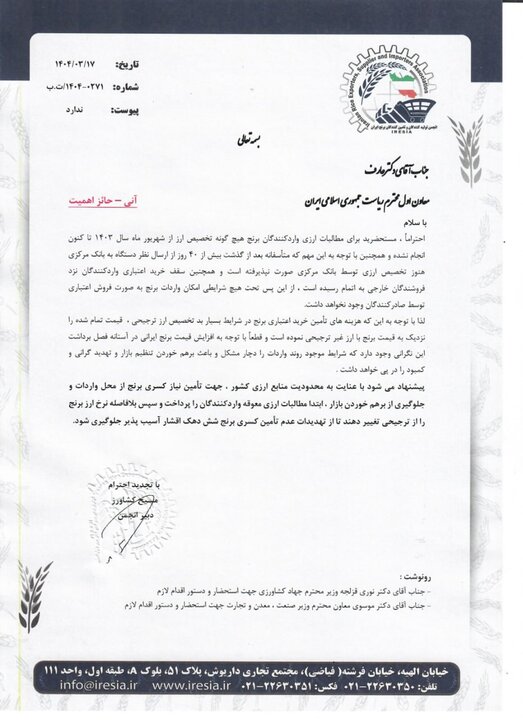 تاریخ: ۱۴۰۴/۰۳/۱۷
شماره: ۱۴۰۴-۰۲۷۱/ت.ب
پیوست: ندارد
Iranian Rice Exporters, Supplier and Importers Association
انجمن تولید کنندگان و تأمین کنندگان برنج ایران
IRESIA
بسمه تعالی
جناب آقای دکتر عارف
معاون اول محترم ریاست جمهوری اسلامی ایران
آنی – حائز اهمیت
با سلام
احتراماً ، مستحضرید برای مطالبات ارزی واردکنندگان برنج هیچ گونه تخصیص ارز از شهریور ماه سال ۱۴۰۳ تا کنون
انجام نشده و همچنین با توجه به این مهم که متأسفانه بعد از گذشت بیش از ۴۰ روز از ارسال نظر دستگاه به بانک مرکزی
هنوز تخصیص ارزی توسط بانک مرکزی صورت نپذیرفته است و همچنین سقف خرید اعتباری واردکنندگان نزد
فروشندگان خارجی به اتمام رسیده است ، از این پس تحت هیچ شرایطی امکان واردات برنج به صورت فروش اعتباری
توسط صادرکنندگان وجود نخواهد داشت.
لذا با توجه به این که هزینه های تأمین خرید اعتباری برنج در شرایط بسیار بد تخصیص ارز ترجیحی ، قیمت تمام شده را
نزدیک به قیمت برنج با ارز غیر ترجیحی نموده است و قطعاً با توجه به افزایش قیمت برنج ایرانی در آستانه فصل برداشت
این نگرانی وجود دارد که شرایط موجود روند واردات را دچار مشکل و باعث برهم خوردن تنظیم بازار و تهدید گرانی و
کمبود را در پی خواهد داشت .
پیشنهاد می شود با عنایت به محدودیت منابع ارزی کشور ، جهت تأمین نیاز کسری برنج از محل واردات و
جلوگیری از برهم خوردن بازار ، ابتدا مطالبات ارزی معوقه واردکنندگان را پرداخت و سپس بلافاصله نرخ ارز برنج
را از ترجیحی تغییر دهند تا از تهدیدات عدم تأمین کسری برنج شش دهک اقشار آسیب پذیر جلوگیری شود.
با تجدید احترام
مسیح کشاورز
دبیر انجمن
رونوشت :
- جناب آقای دکتر نوری قزلجه وزیر محترم جهاد کشاورزی جهت استحضار و دستور اقدام لازم
- جناب آقای دکتر موسوی معاون محترم وزیر صنعت ، معدن و تجارت جهت استحضار و دستور اقدام لازم
خیابان الهیه، خیابان فرشته( فیاضی)، مجتمع تجاری داریوش، پلاک ۵۱، بلوک A، طبقه اول، واحد ۱۱۱
تلفن: ۲۲۶۳۰۳۵۰-۰۲۱ فکس: ۲۲۶۳۰۳۵۱-۰۲۱ www.iresia.ir info@iresia.ir